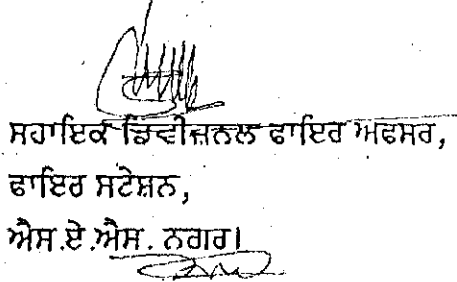 ਸਹਾਇਕ ਡਿਵੀਜ਼ਨਲ ਫਾਇਰ ਅਫਸਰ,
ਫਾਇਰ ਸਟੇਸ਼ਨ,
ਐਸ.ਏ.ਐਸ. ਨਗਰ।